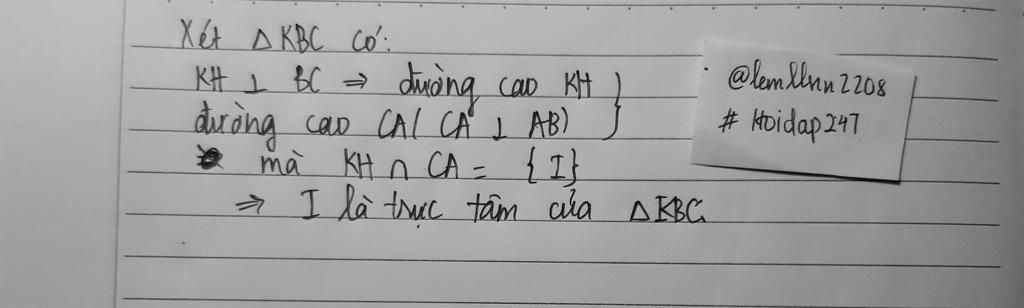 Xét △KBC có:
KH ⊥ BC ⇒ đường cao KH
đường cao CA( CA ⊥ AB)
mà KH ∩ CA = {I}
⇒ I là trực tâm của △KBC
@lemllnn2208
# Hoidap247